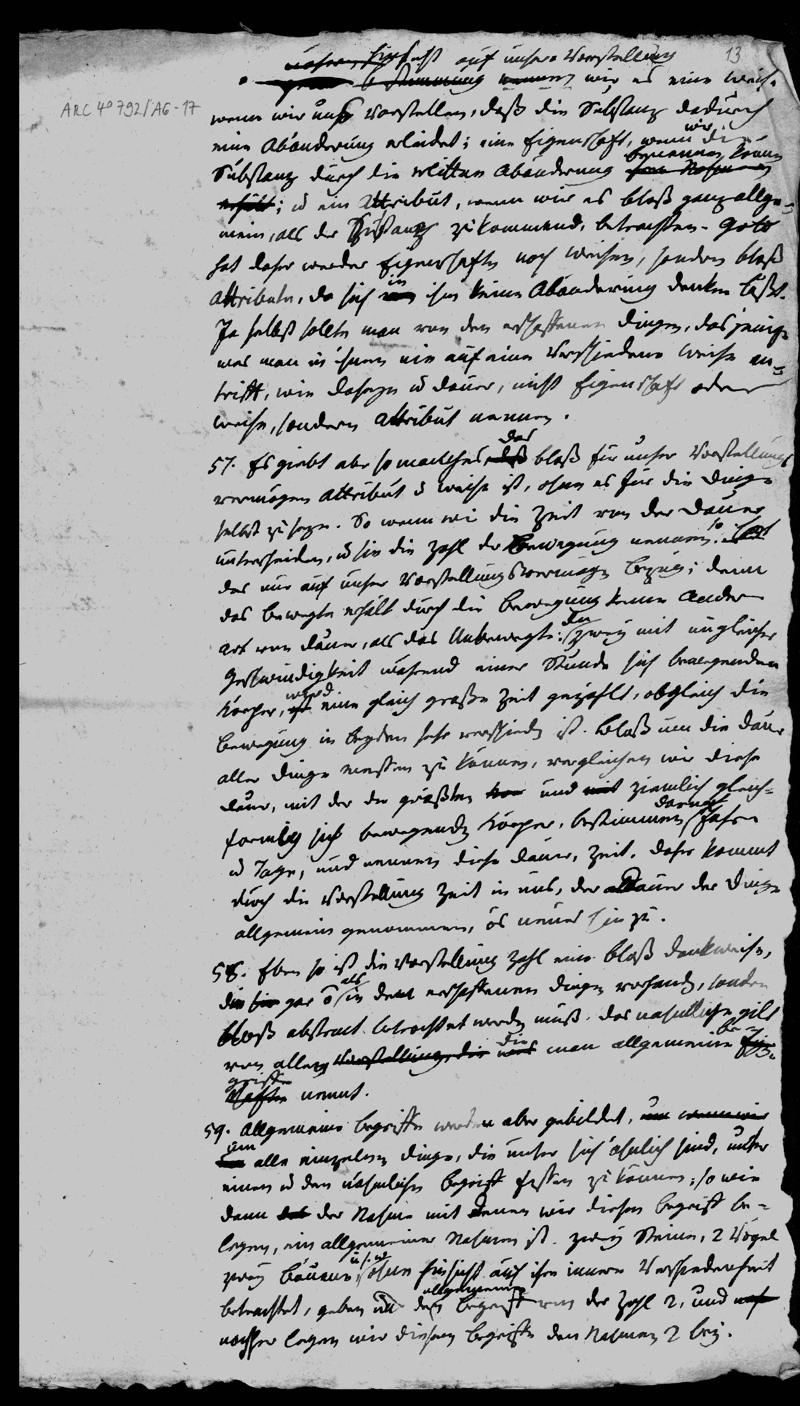 13
ARC 4° 792/A6-17
auf unsere Vorstellung
nennen wir es eine Weise.
wenn wir uns vorstellen, daß die Substanz dadurch
eine Abänderung erleidet; eine Eigenschaft, wenn wir die
Substanz durch die erlittene Abänderung benennen können
erhält; u ein Attribut, wenn wir es bloß ganz allge-
mein, als der Substanz zukommend, betrachten. Gott
hat daher weder Eigenschaften noch Weisen, sondern bloß
Attribute, da sich in ihm keine Abänderung denken läßt.
Ja selbst sollte man von den erschaffenen Dingen, dasjenige
was man in ihnen nie auf eine verschiedene Weise an-
trifft, wie Daseyn u Dauer, nicht Eigenschaft oder
Weise, sondern Attribut nennen.
57. Es giebt aber so manches, das bloß für unser Vorstellungs
vermögen Attribut u Weise ist, ohne es für die Dinge
selbst zu seyn. So wenn wir die Zeit von der Dauer
unterscheiden, u sie die Zahl der Bewegung nennen: so hat
das nur auf unser Vorstellungsvermögen Bezug; denn
das Bewegte erhält durch die Bewegung keine andere
Art von Dauer, als das Unbewegte: den zwey mit ungleicher
Geschwindigkeit während einer Stunde sich bewegenden
Körper, wird eine gleich große Zeit gezählt, obgleich die
Bewegung in beyden sehr verschieden ist. Bloß um die Dauer
aller Dinge messen zu können, vergleichen wir diese
Dauer, mit der der größten und ziemlich gleich-
förmig sich bewegenden Körper, bestimmen darnach Jahre
u Tage, und nennen diese Dauer, Zeit. Daher kommt
durch die Vorstellung Zeit in uns, der Dauer der Dinge
allgemein genommen, nichts neues hinzu.
58. Eben so ist die Vorstellung Zahl eine bloß Denkweise,
die gar als in den erschaffenen Dingen vorhanden, sondern
bloß abstract betrachtet werden muß. Das nähmliche gilt
von allem die man allgemeine Be-
griffe nennt.
59. Allgemeine Begriffe werden aber gebildet,
um alle einzelnen Dinge, die unter sich ähnlich sind, unter
einen u den nähmlichen Begriff fassen zu können; so wie
dann der Nahme mit denen wir diesen Begriff be-
legen, ein allgemeiner Nahmen ist. Zwey Steine, 2 Vögel
zwey Bäume, u.s.w. ohne Hinsicht auf ihre innere Verschiedenheit
betrachtet, geben uns den allgemeinen Begriff von der Zahl 2, und
nachher legen wir diesem Begriffe den Nahmen 2 bey.